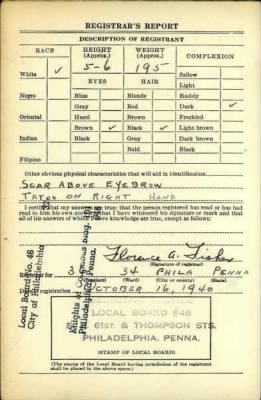 REGISTRAR'S REPORT
DESCRIPTION OF REGISTRANT
RACE
HEIGHT (Approx.)
WEIGHT (Approx.)
COMPLEXION
5-6
195
White ✓
Sallow
EYES
HAIR
Light
Negro
Blue
Blonde
Ruddy
Gray
Red
Dark ✓
Oriental
Hazel
Brown
Freckled
Brown ✓
Black ✓
Light brown
Indian
Black
Gray
Dark brown
Bald
Black
Filipino
Other obvious physical characteristics that will aid in identification
SCAR ABOVE EYEBROW
TATOO ON RIGHT HAND
I certify that my answers are true; that the person registered has read or has had
read to him his own answers; that I have witnessed his signature or mark and that
all of his answers of which I have knowledge are true, except as follows:
Florence A. Fisher
(Signature of registrar)
Registrar for 3 34 PHILA PENNA
(Precinct) (Ward) (City or county) (State)
Date of registration OCTOBER 16, 1940
Local Board No. 48
City of Philadelphia
Philadelphia, Penna.
LOCAL BOARD #48
61st. & THOMPSON STS.
PHILADELPHIA, PENNA.
(STAMP OF LOCAL BOARD)
(The stamp of the Local Board having jurisdiction of the registrant
shall be placed in the above space.)